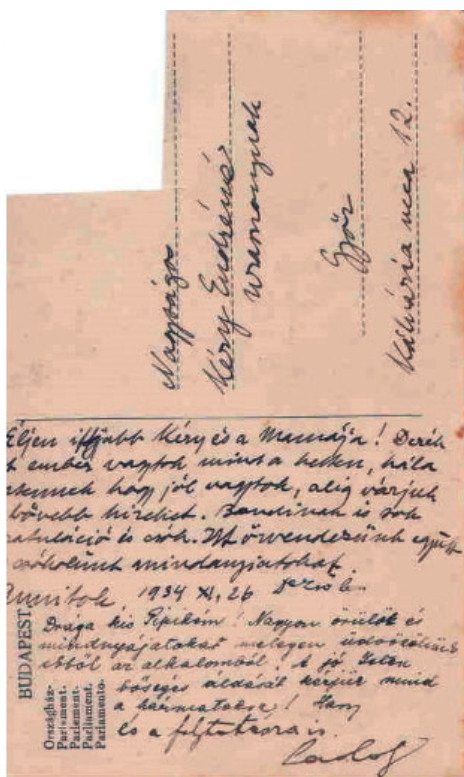 Nagyságos
Kéry Endréné
uramonynak
Győr
Kálvária ucca 12.
Éljen ifjabb Kéry és a Mamája! Derék
ember vagytok mint a heten, hála
hogy jól vagytok, alig várjuk
bővebb hireket. Bandinak is sok
gratuláció és csók. Itt örvendezünk együtt
csókolunk mindanyiatokat
1934 XI, 26
Drága kis Pipikém! Nagyon örülök és
mindnyájatokat melegen üdvözöllek
ebből az alkalomból! A jó Isten
bőséges áldását kérjük mind
a hármatokra!
és a folytatásra is.
BUDAPEST
Országház-
Parlament.
Parlement.
Parliament.
Parlamento-